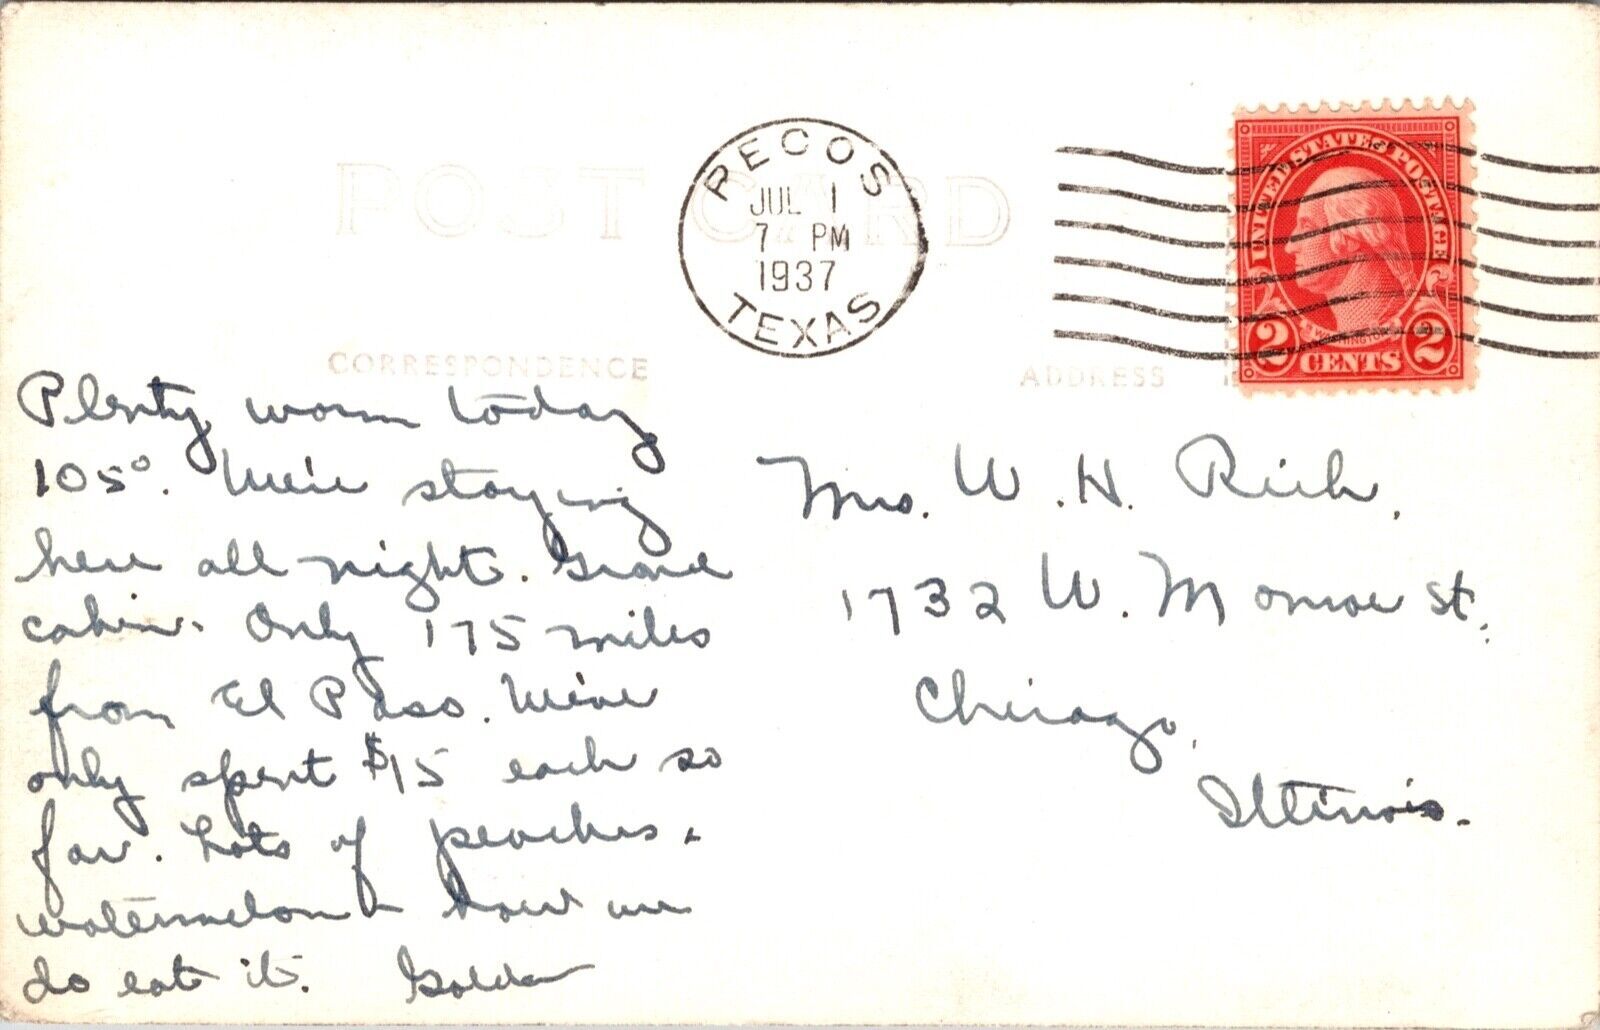 POST CARD
PECOS
JUL 1
7 PM
1937
TEXAS
UNITED STATES POSTAGE
WASHINGTON
2 CENTS 2
CORRESPONDENCE
ADDRESS
Plenty warm today
105°. We're staying
here all night. Grand
cabin. Only 175 miles
from El Paso. We've
only spent $15 each so
far. Lots of peaches,
watermelon & how we
do eat it. Golda
Mrs. W. H. Rich,
1732 W. Monroe St,
Chicago,
Illinois.